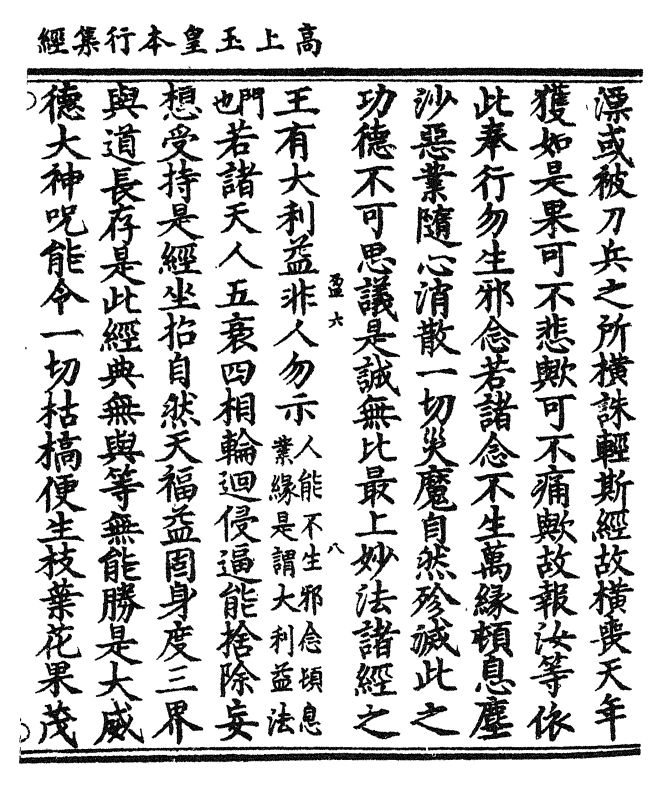 高上玉皇本行集經
漂或被刀兵之所橫誅輕斯經故橫喪天年
獲如是果可不悲歟可不痛歟故報汝等依
此奉行勿生邪念若諸念不生萬緣頓息塵
沙惡業隨心消散一切災魔自然殄滅此之
功德不可思議是誠無比最上妙法諸經之
盈六 八
王有大利益非人勿示人能不生邪念頃息
業緣是謂大利益法
門也若諸天人五衰四相輪迴侵逼能捨除妄
想受持是經坐招自然天福益固身度三界
與道長存是此經典無與等無能勝是大威
德大神呪能令一切枯槁便生枝葉花果茂